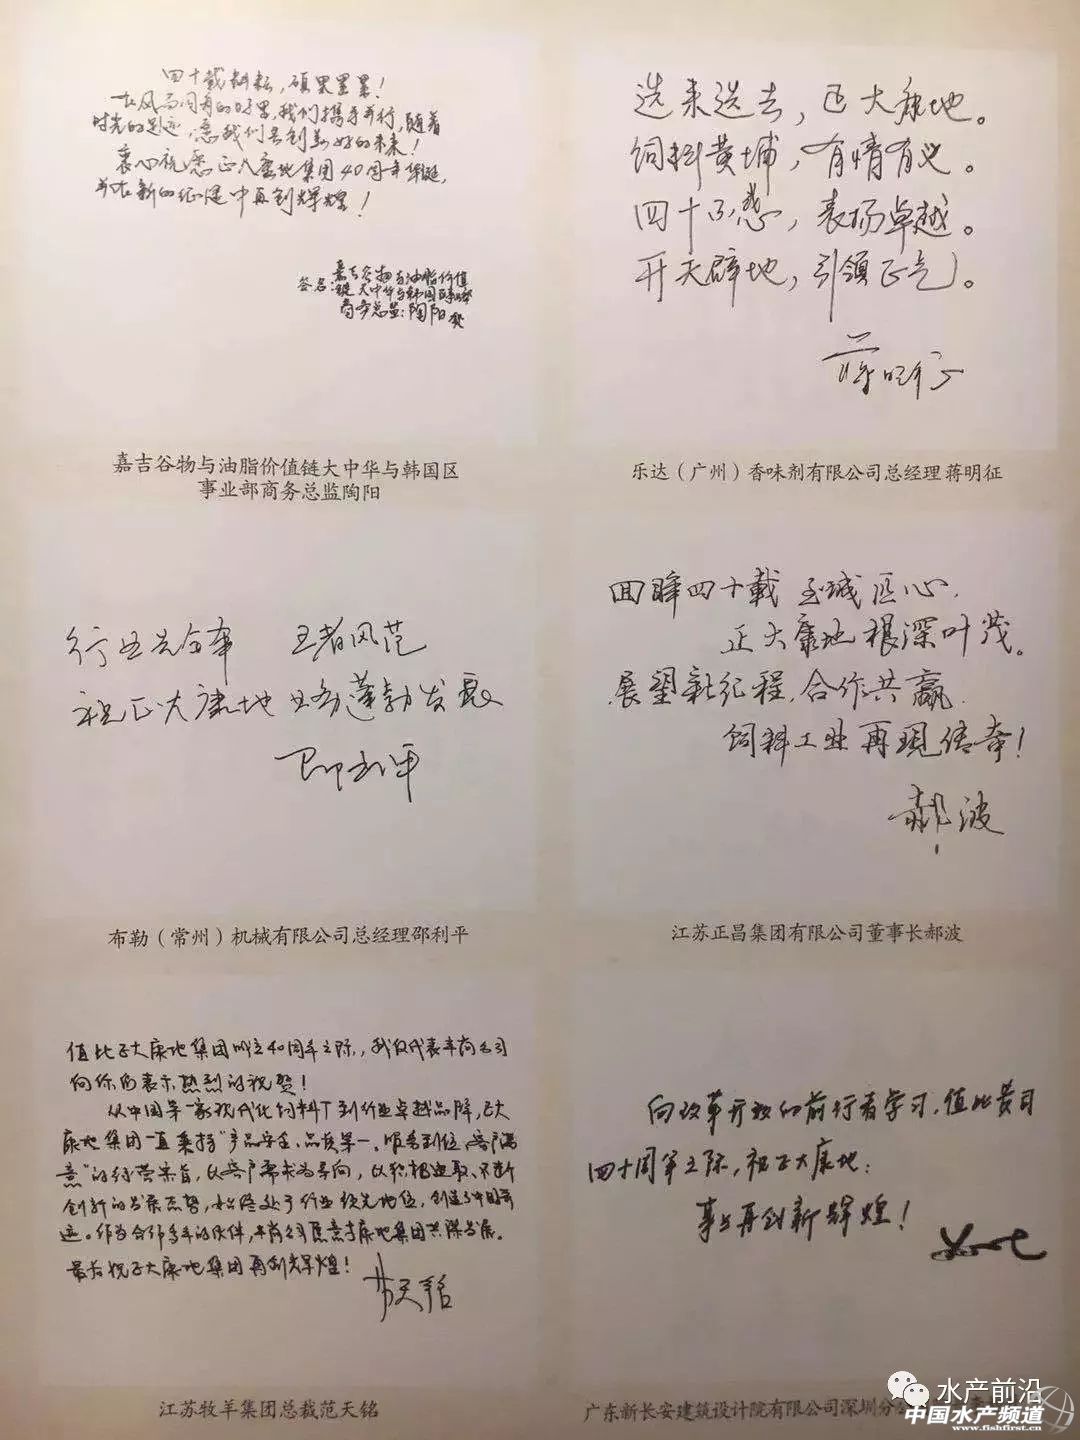 四十载耕耘，硕果累累！
在风雨同舟的日子里，我们携手并行，随着
时光的足迹，愿我们共创美好的未来！
衷心祝愿正大康地集团40周年华诞，
并在新的征程中再创辉煌！
签名：嘉吉谷物与油脂价值
链大中华与韩国区事业部
商务总监：陶阳
嘉吉谷物与油脂价值链大中华与韩国区
事业部商务总监陶阳
选来选去，正大康地。
饲料黄埔，有情有义。
四十不惑，表扬卓越。
开天辟地，引领正气。
蒋明征
乐达（广州）香味剂有限公司总经理蒋明征
行业先锋 王者风范
祝正大康地业务蓬勃发展
邵利平
布勒（常州）机械有限公司总经理邵利平
回眸四十載 至诚匠心，
正大康地根深叶茂。
展望新纪程，合作共赢
饲料工业再現传奇！
郝波
江苏正昌集团有限公司董事长郝波
值此正大康地集团成立40周年之际，我仅代表牧羊公司
向你们表示热烈的祝贺！
从中国第一家现代化饲料厂到行业卓越品牌，正大
康地集团一直秉持“产品安全、品质第一、服务到位、客户满
意”的经营宗旨，以客户需求为导向，以积极进取、不断
创新的发展态势，始终处于行业领先地位，创造了中国奇
迹。作为合作多年的伙伴，牧羊公司愿意与康地集团共谋发展。
最后祝正大康地集团再创辉煌！
范天铭
江苏牧羊集团总裁范天铭
向改革开放的前行者学习，值此贵司
四十周年之际，祝正大康地：
事业再创新辉煌！
广东新长安建筑设计院有限公司深圳分
水产前沿
中国水产频道
www.fishfirst.cn